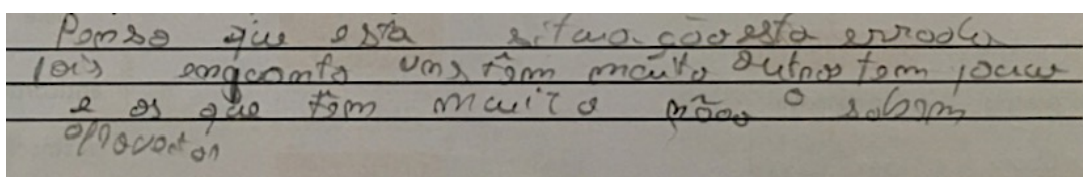 Penso que esta situa cão esta errada
pois enquanto uns têm muito outros tem pouco
e os que têm muito não o sabem
aprovatar